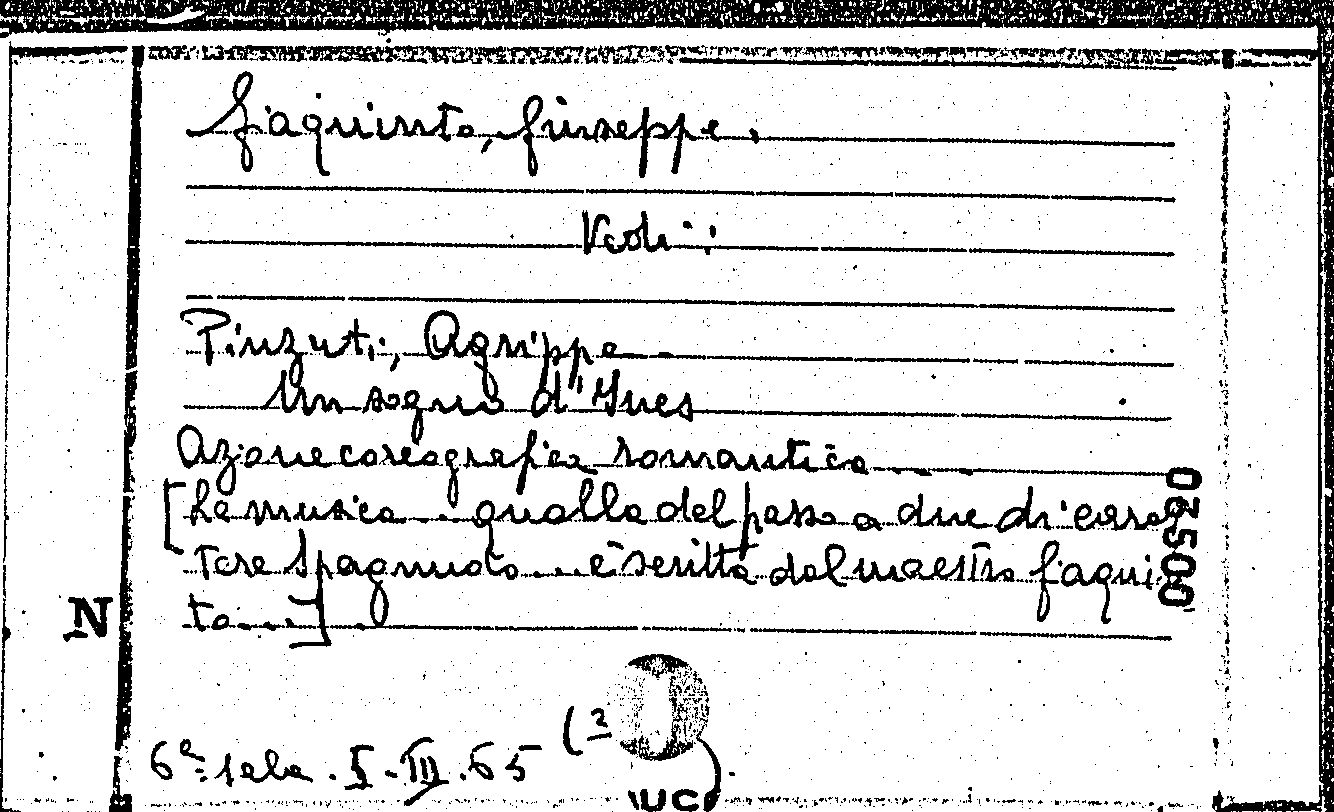 Giaquinto, Giuseppe.
Vedi:
Pinzuti, Agrippa.
Un sogno d'Ines
Azione coreografica romantica....
[La musica... qualla del passo a due di carat
tere Spagnuolo... è scritta dal maestro Giaqui
to...].
02500
N
6ª sala. I-III.65 (2
).
IUCC